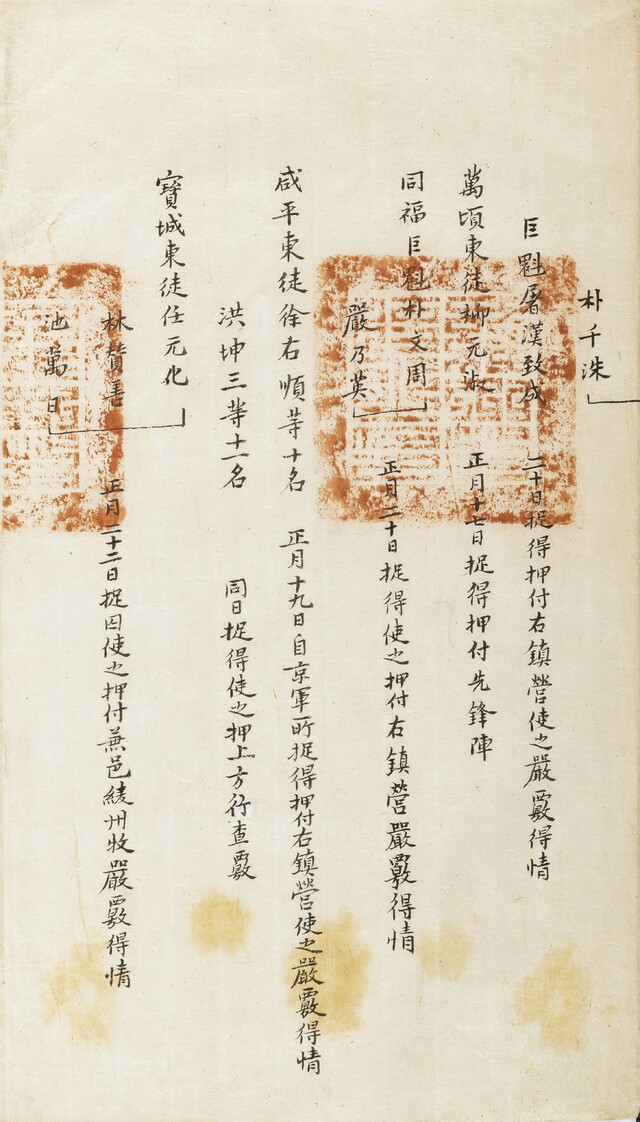 朴千洙
巨魁屠漢致成 二十日捉得押付右鎭營使之嚴覈得情
萬頃東徒柳元淑 正月十七日捉得押付先鋒陣
同福巨魁朴文周
嚴乃英 正月二十日捉得使之押付右鎭營嚴覈得情
咸平東徒徐右順等十名 正月十九日自京軍所捉得押付右鎭營使之嚴覈得情
洪坤三等十一名 同日捉得使之押上方行查覈
寶城東徒任元化
林贊善 正月二十二日捉囚使之押付兼邑綾州牧嚴覈得情
池萬日